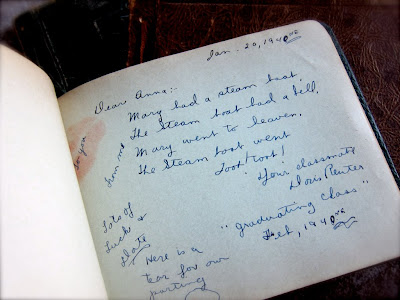 Jan. 20, 1940
Dear Anna:-
Mary had a steam boat,
The Steam boat had a bell,
Mary went to heaven,
The Steam boat went
Toot! toot!
Your classmate
Doris Reuter
"graduating class"
Feb, 1940
from me
to you
Lots of
Luck &
Here is a
tear for our
parting